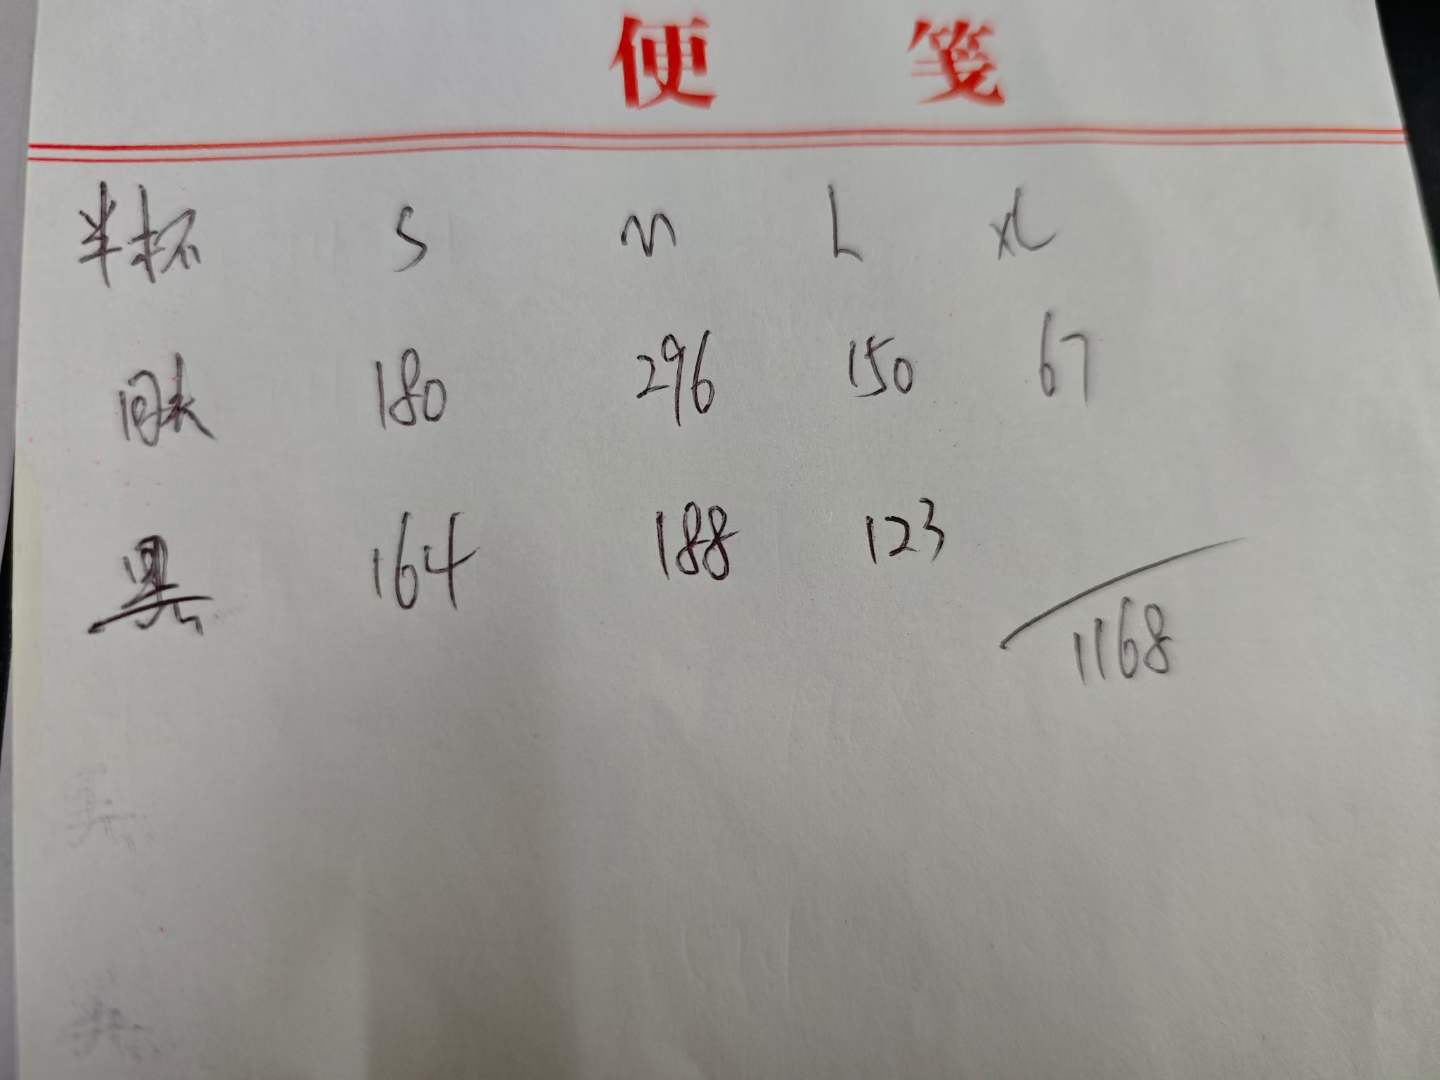 便 笺
半杯 S M L XL
肤 180 296 150 67
黑 164 188 123
1168